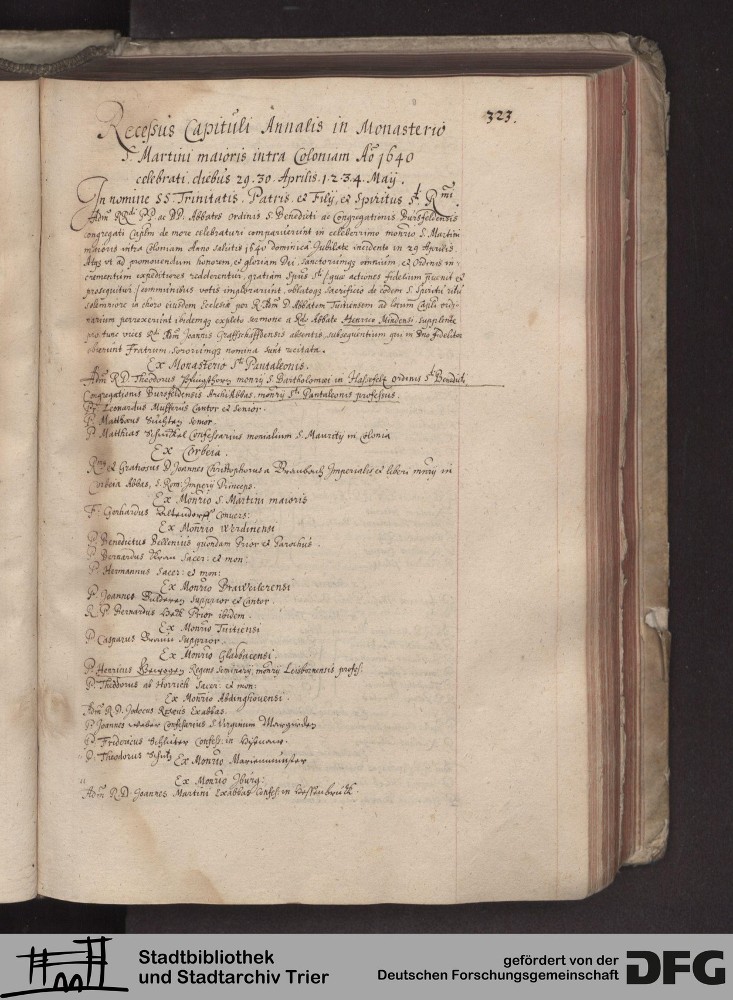 323.
Recessus Capituli Annalis in Monasterio
S. Martini maioris intra Coloniam Aō 1640
celebrati diebus 29. 30. Aprilis. 1. 2. 3. 4. Maij.
In nomine SS. Trinitatis. Patris. et Filij, et Spiritus Sti. Rmi
Admi RRdi PP. ac DD. Abbates ordinis S. Benedicti ac Congregationis Bursfeldensis
congregati Caplm de more celebraturi comparuerunt in celeberrimo monrio S. Martini
maioris intra Coloniam Anno salutis 1640 Dominica Jubilate incidente in 29 Aprilis.
Atque ut ad promovendum honorem, et gloriam Dei, sanctorumque omnium, et Ordinis in-
crementum expeditiores redderentur, gratiam Spus Sti, quae actiones fidelium juvenit et
prosequitur, communibus votis implorarunt, oblatoque sacrificio de eodem S. Spiritu ritu
solemniore in choro eiusdem Ecclesiae per R. Adm D. Abbatem Tuitiensem ad locum Capli ordi-
narium perrexerunt ibidemque expleto sermone a Rdo Abbate Henrico Mindensi supplente
pro tunc vices Rdi Adm Joannis Graffschaffdensis absentis, subsequentium qui in Dno fideliter
obierunt Fratrum, Sororumque nomina sunt recitata.
Ex Monasterio Sti Pantaleonis.
Adm R. D. Theodorus monrij S. Bartholomaei in ordinis Sti Benedicti
Congregationis Bursfeldensis ArchiAbbas, monrij Sti Pantaleonis professus.
Fr. Leonardus Mufferus Cantor et Senior.
P. Matthaeus Senior.
P. Matthias Confessarius monialium S. Mauritij in Colonia
Ex Corbeia.
Rmus et Gratiosus D. Joannes Christophorus a Brambach Imperialis et liberi mnrij in
Corbeia Abbas, S. Rom: Imperij Princeps.
Ex Monrio S. Martini maioris
F. Gerhardus Convers:
Ex Monrio Werdinensi
P. Benedictus Bellenius quondam Prior et Parochus.
P. Bernardus Sacer: et mon:
P. Hermannus Sacer: et mon:
Ex Monrio Brawilerensi
F. Joannes Supprior et Cantor.
R. P. Bernardus Prior ibidem.
Ex Monrio Tuitiensi
P. Casparus Braun Supprior.
Ex Monrio Gladbacensi.
P. Henricus Regens Seminarij, monrij Leisbornensis profess.
P. Theodorus ab Horrich Sacer: et mon:
Ex Monrio Abdinghouensi.
Adm R. D. Jodocus Exabbas.
P. Joannes Weber Confessarius S. Virginum
P. Fridericus Schlüter Confess: in
P. Theodorus Schutz
Ex Monrio Marienmünster
Ex Monrio Jburg:
Adm R. D. Joannes Martini Exabbas Confess: in
Stadtbibliothek
und Stadtarchiv Trier
gefördert von der
Deutschen Forschungsgemeinschaft
DFG